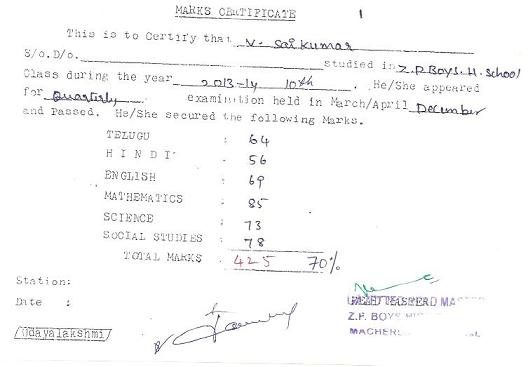 MARKS CERTIFICATE 1
This is to Certify that V. Saikumar
S/o.D/o. studied in Z.P Boys.H.School
Class during the year 2013-14 10th. He/She appeared
for Quarterly examination held in March/April December
and Passed. He/She secured the following Marks.
TELUGU : 64
HINDI : 56
ENGLISH : 69
MATHEMATICS : 85
SCIENCE : 73
SOCIAL STUDIES : 78
TOTAL MARKS . 425 70%
Station:
Date :
Z.P. BOYS
/Udayalakshmi/